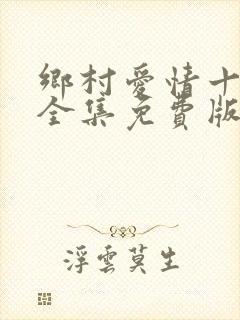 鄉村愛情十
全集免費版
浮雲莫生